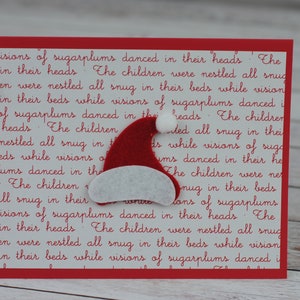 visions of sugarplums danced in their heads The
in their heads The children were nestled all snug
were nestled all snug in their beds while visions
in their beds while visions of sugarplums danced
visions of sugarplums danced in their heads The
in their heads The children were nestled all snug
were nestled all snug in their beds
in their beds while visions danced
visions of sugarplums heads The
in their heads The chil all snug
were nestled all snug visions
in their beds while danced
visions of sugarplums danced in their heads The
in their heads The children were nestled all snug
were nestled all snug in their beds while visions
in their beds while visions of sugarplums danced